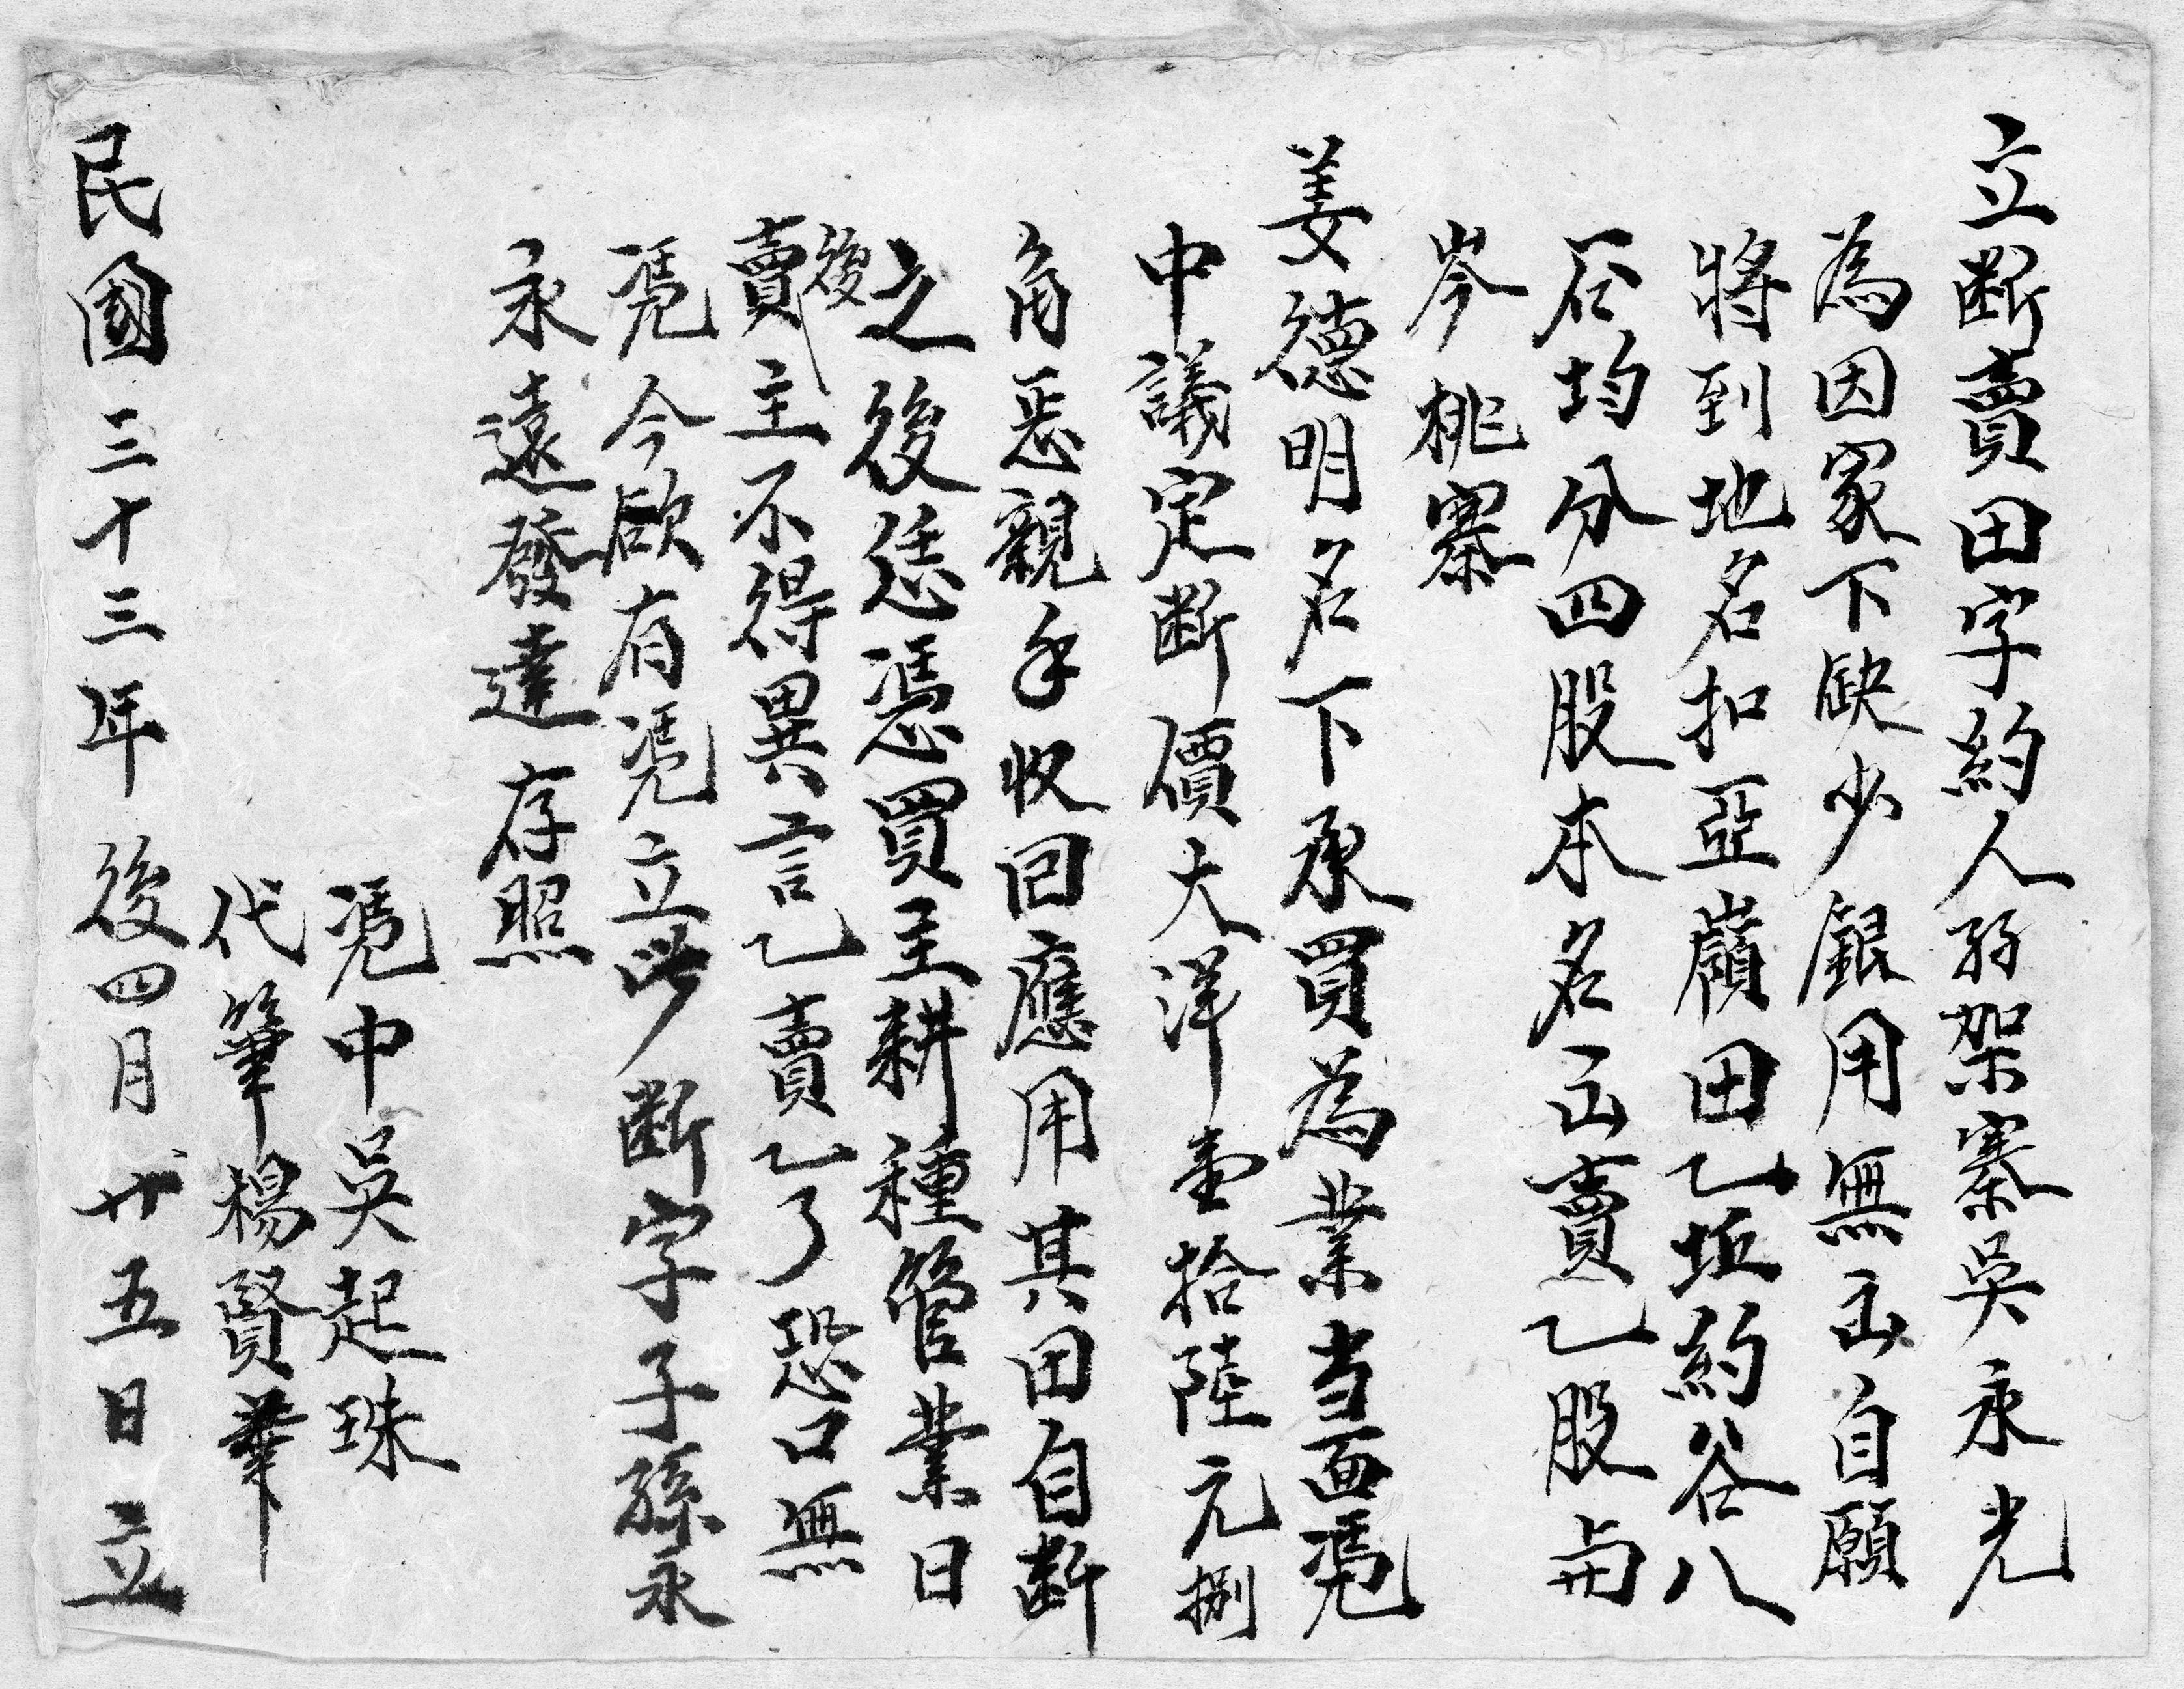 立断賣田字約人孖架寨吳永光
為因家下缺少銀用無出自願
將到地名扣亞嶺田乙坵約谷八
石均分四股本名出賣乙股与
岑桃寨
姜德明名下承買為業当面凴
中議定断價大洋壹拾陸元捌
角悉親手收回應用其田自断
之後恁憑買主耕種管業日
後
賣主不得異言乙賣乙了恐口無
凴今欲有凴立此断字子孫永
永遠發達存照
凴中吳起珠
代筆楊賢華
民國三十三年後四月廿五日立